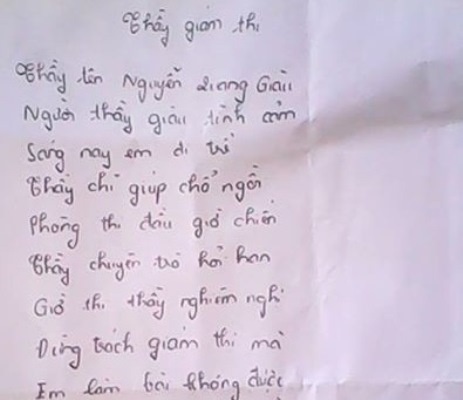 Thầy giám thị
Thầy tên Nguyễn Quang Giàu
Người thầy giàu tình cảm
Sáng nay em đi trễ
Thầy chỉ giúp chổ ngồi
Phòng thi đầu giờ chiến
Thầy chuyện trò hỏi han
Giờ thi thầy nghiêm nghị
Đừng trách giám thị mà
Em làm bài không được